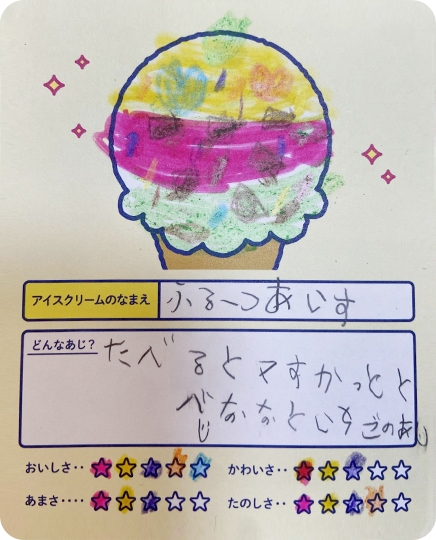 アイスクリームのなまえ
ふるーつあいす
どんなあじ?
たべ
るとマすかっとと
なな
おいしさ‥ かわいさ‥
あまさ‥‥ たのしさ‥